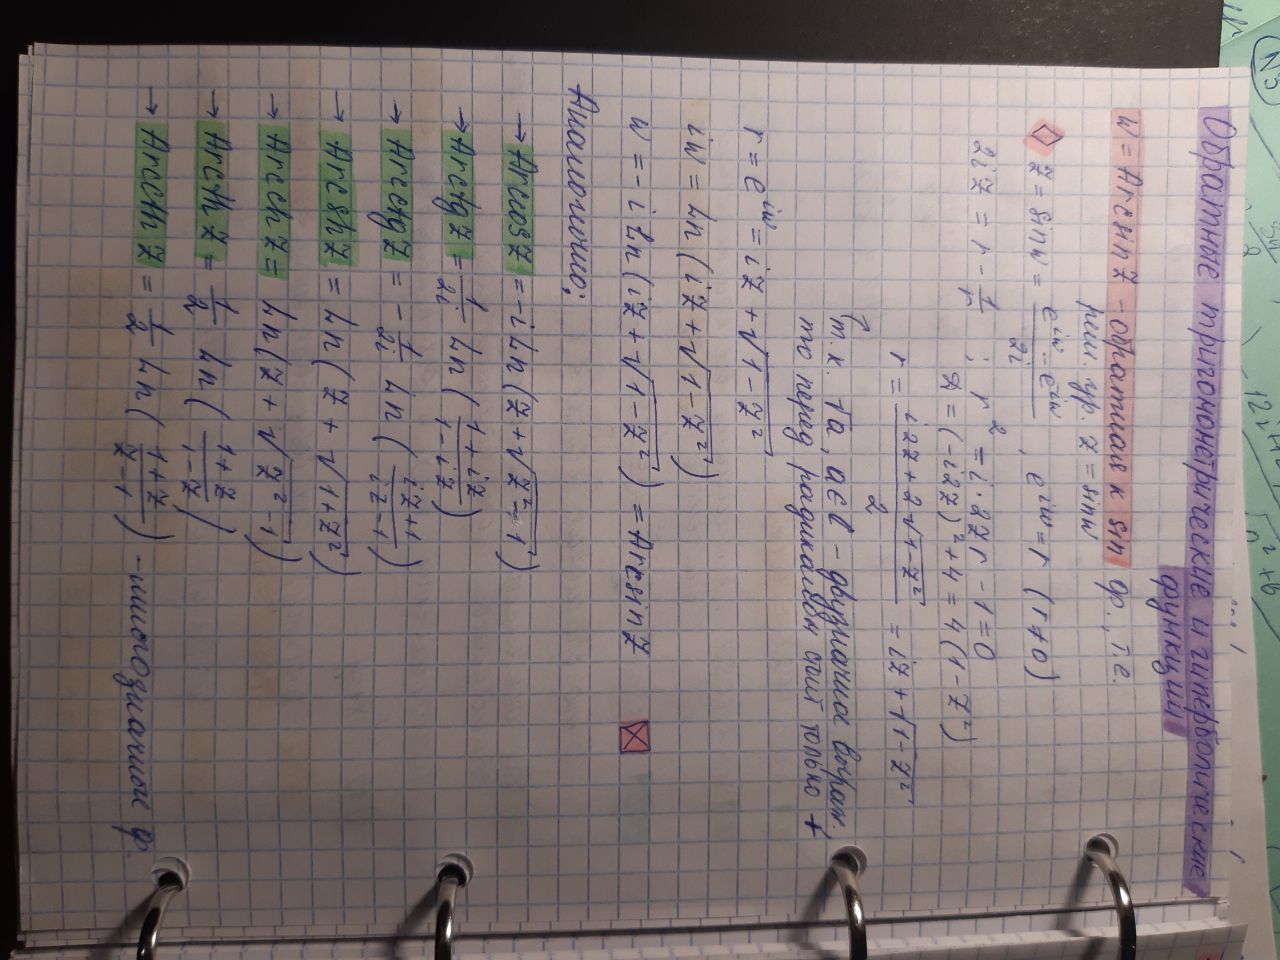 Обратные тригонометрические и гиперболические
функции
w = Arcsin z - обратная к sin ф., т.е.
реш. ур. z = sin w
z = sin w = (e^{iw} - e^{iw})/2i , e^{iw} = r (r ≠ 0)
2iz = r - 1/r ; r² = i·2zr - 1 = 0
D = (-i2z)² + 4 = 4(1 - z²)
r = (i2z + 2√(1-z²))/2 = iz + √(1-z²)
т.к. √a, a∈ℂ - двузначна
то перед радикалом стоит только +
r = e^{iw} = iz + √(1-z²)
iw = Ln(iz + √(1-z²))
w = -i Ln(iz + √(1-z²)) = Arcsin z
Аналогично:
→ Arccos z = -i Ln(z + √(z²-1))
→ Arctg z = 1/2i Ln((1+iz)/(1-iz))
→ Arcctg z = -1/2i Ln((iz+1)/(iz-1))
→ Arcsh z = Ln(z + √(1+z²))
→ Arcch z = Ln(z + √(z²-1))
→ Arcth z = 1/2 Ln((1+z)/(1-z))
→ Arccth z = 1/2 Ln((1+z)/(z-1)) - многозначные ф.
N5